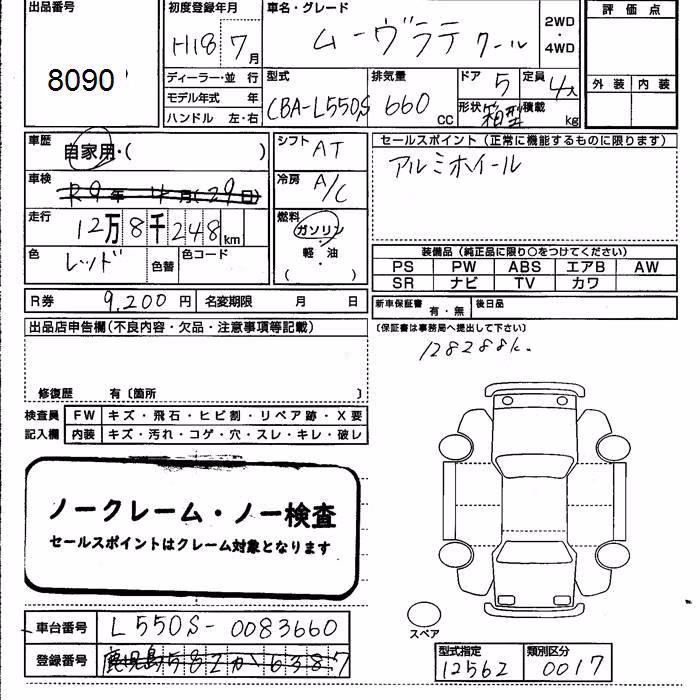 出品番号
8090
初度登録年月
H18 7月
車名・グレード
ムーヴラテ クール
2WD
・
4WD
評価点
外装 内装
ディーラー・並行
モデル年式 年
ハンドル 左・右
型式
CBA-L550S
排気量
660 cc
ドア
5
定員
4人
形状
箱型
積載
kg
車歴
自家用・( )
車検
R9年4月(29日)
走行
12万8千248km
色
レッド
色替
色コード
シフト
AT
冷房
A/C
燃料
ガソリン
・
軽油
・
( )
セールスポイント(正常に機能するものに限ります)
アルミホイール
装備品(純正品に限り○をつけてください)
PS PW ABS エアB AW
SR ナビ TV カワ
R券 9,200円 名変期限 月 日
新車保証書 有・無 後日品
(保証書は事務局へ提出して下さい)
128288k.
出品店申告欄(不良内容・欠品・注意事項等記載)
修復歴 有〔箇所 〕
検査員 FW キズ・飛石・ヒビ割・リペア跡・X要
記入欄 内装 キズ・汚れ・コゲ・穴・スレ・キレ・破レ
ノークレーム・ノー検査
セールスポイントはクレーム対象となります
スペア
車台番号 L550S-0083660
登録番号 鹿児島582か6387
型式指定
12562
類別区分
0017